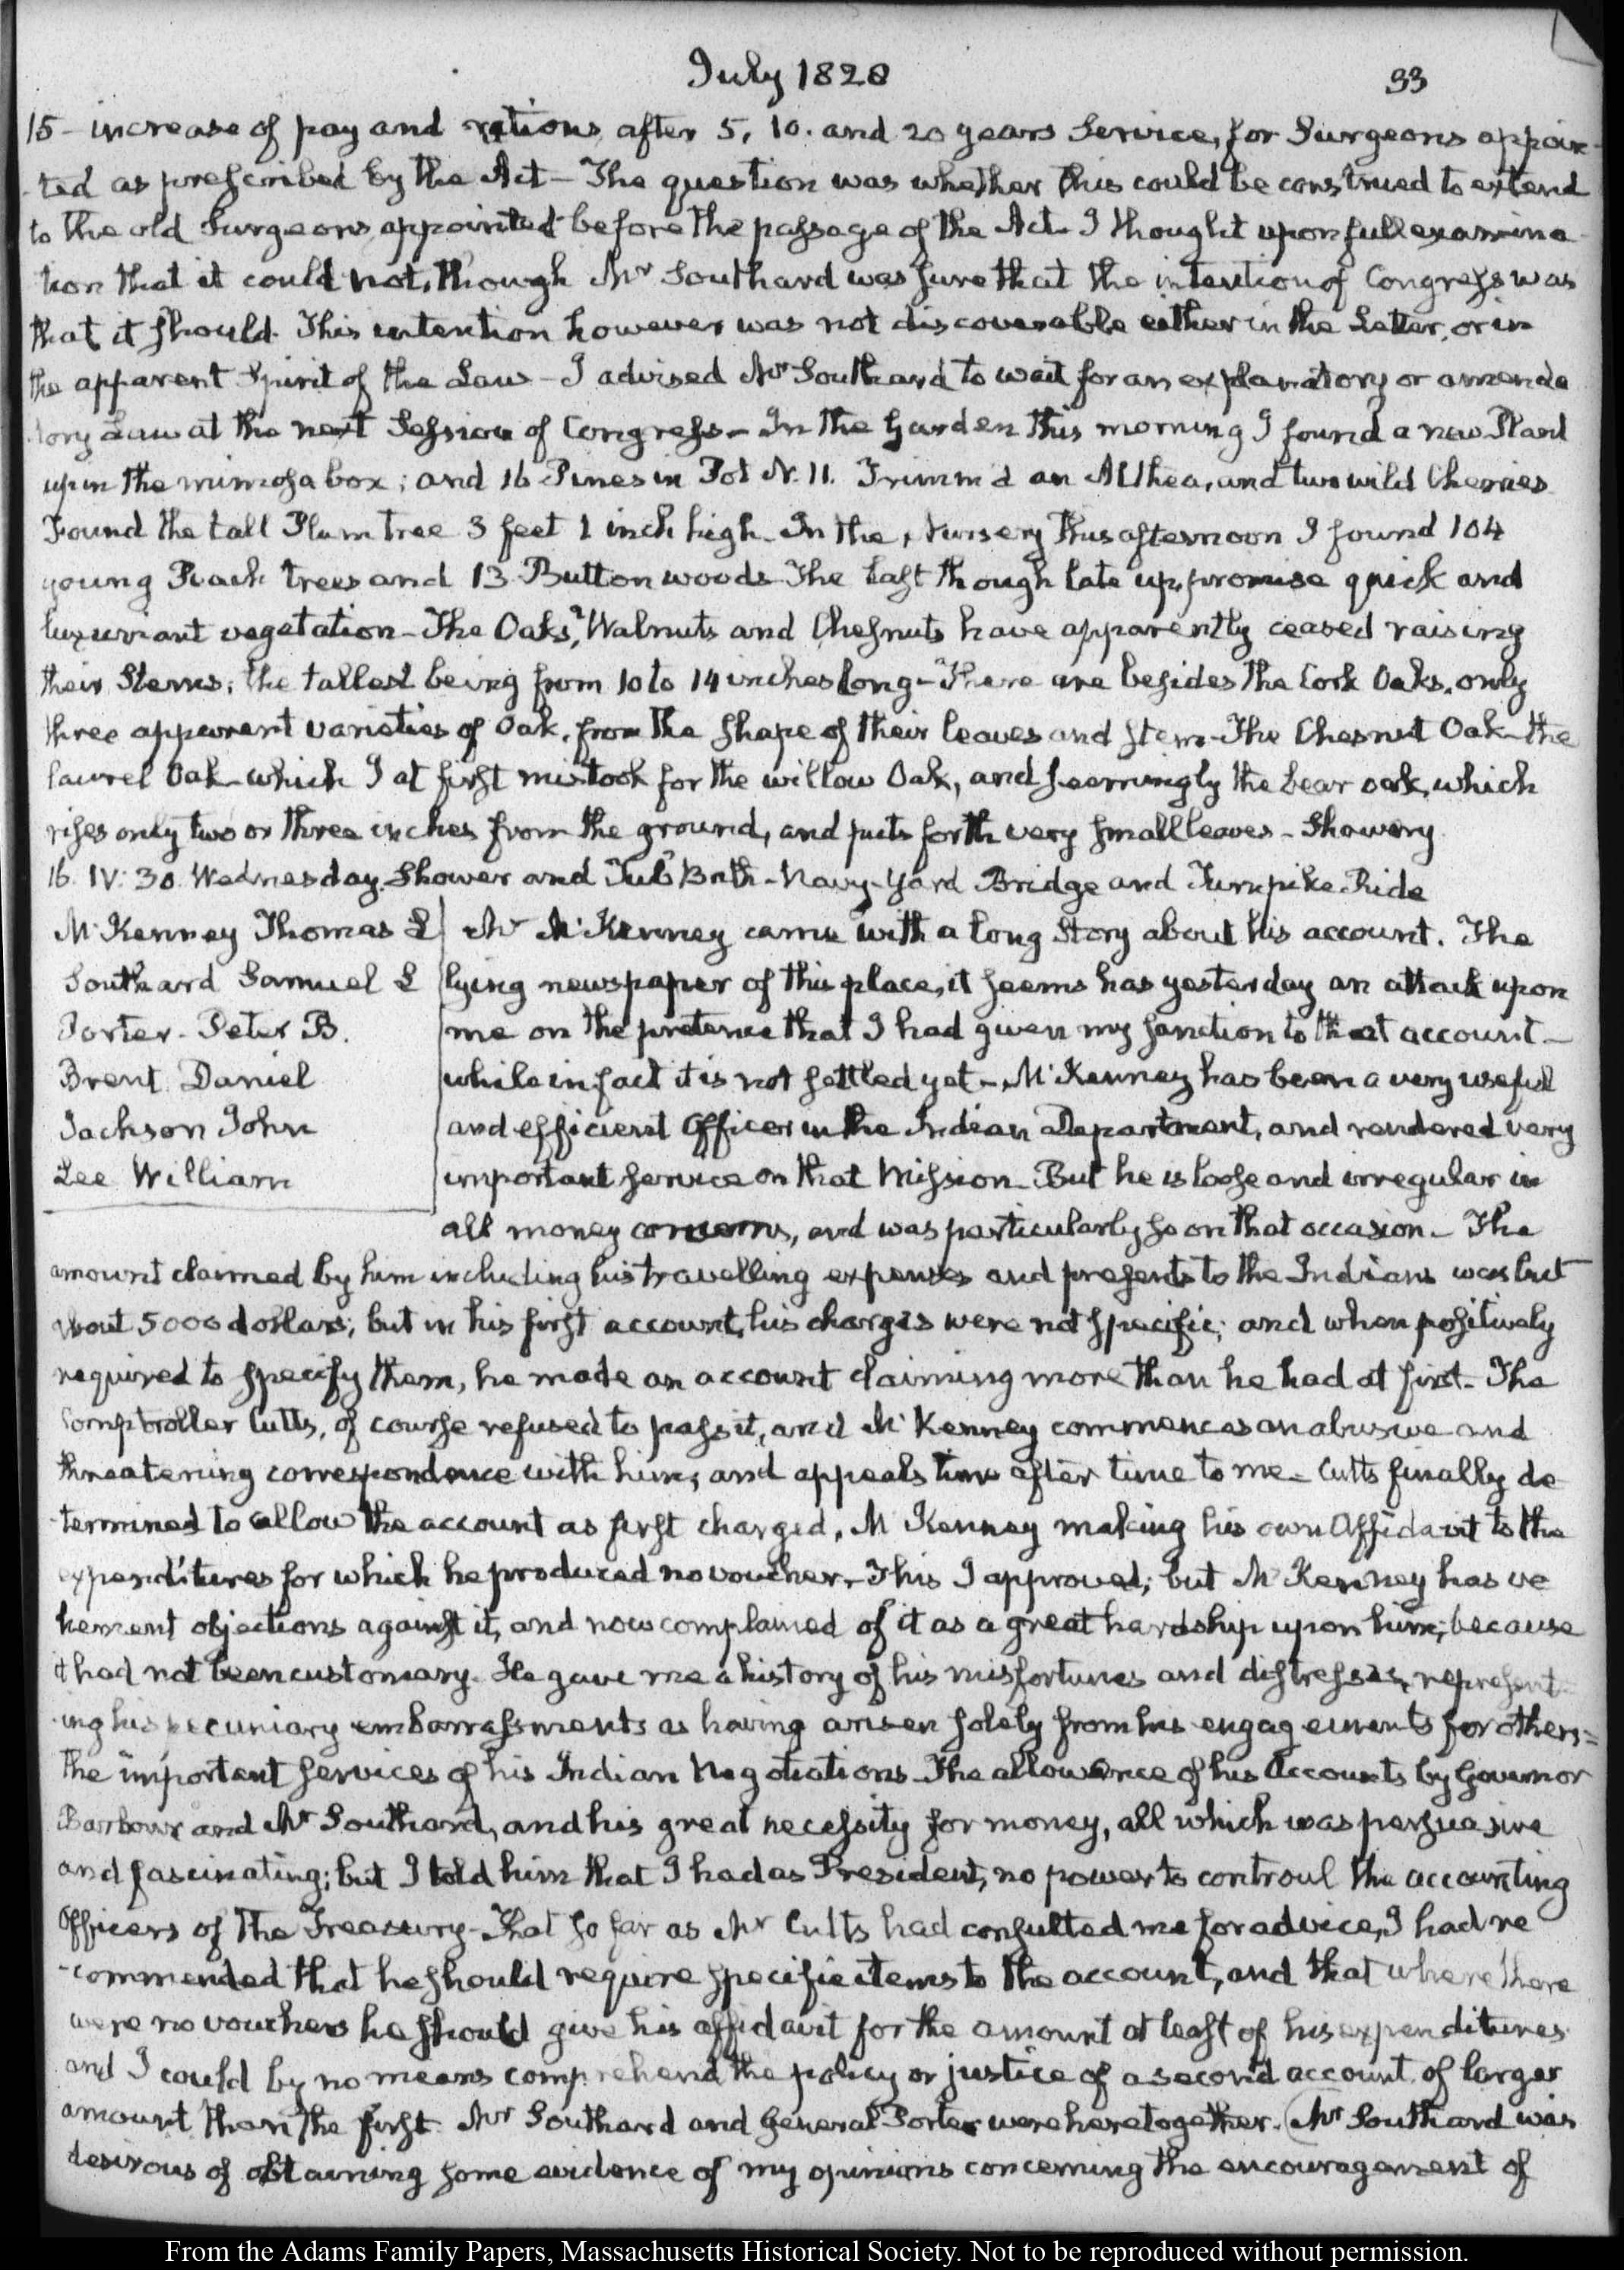 July 1828
33
15- increase of pay and rations, after 5, 10. and 20 years Service, for Surgeons appoin-
-ted as prescribed by the Act - The question was whether this could be construed to extend
to the old Surgeons appointed before the passage of the Act. I thought upon full examina-
tion that it could not, though Mr Southard was sure that the intention of Congress was
that it should. This intention however was not discoverable either in the Letter, or in
the apparent Spirit of the Law - I advised Mr Southard to wait for an explanatory or amenda
tory Law at the next Session of Congress - In the Garden this morning I found a new Plant
up in the mimosa box; and 16 Pines in Pot N. 11. Trimm'd an Althea, and two wild Cherries
Found the tall Plum tree 3 feet 1 inch high - In the, Nursery this afternoon I found 104
young Peach trees and 13 Button woods - The last though late up, promise quick and
luxuriant vegetation - The Oaks, Walnuts and Chesnuts have apparently ceased raising
their Stems; the tallest being from 10 to 14 inches long - There are besides the Cork Oaks, only
three apparent varieties of Oak, from the shape of their leaves and stem - The Chesnut Oak - the
laurel Oak - which I at first mistook for the willow Oak, and seemingly the bear oak, which
rises only two or three inches from the ground, and puts forth very small leaves - Showery.
16. IV: 30. Wednesday. Shower and Tub Bath - Navy-Yard Bridge and Turnpike Ride
McKenney Thomas L
Southard Samuel L
Porter - Peter B.
Brent Daniel
Jackson John
Lee William
Mr McKenney came with a long Story about his account. The
lying newspaper of this place, it seems has yesterday an attack upon
me on the pretence that I had given my sanction to that account -
while in fact it is not settled yet - McKenney has been a very useful
and efficient Officer in the Indian Department, and rendered very
important service on that Mission - But he is loose and irregular in
all money concerns, and was particularly so on that occasion - The
amount claimed by him including his travelling expenses and presents to the Indians was but
about 5000 dollars; but in his first account, his charges were not specific; and when positively
required to specify them, he made an account claiming more than he had at first - The
Comptroller Cutts, of course refused to pass it, and McKenney commences an abusive and
threatening correspondence with him, and appeals time after time to me - Cutts finally de
-termined to allow the account as first charged, McKenney making his own Affidavit to the
expenditures for which he produced no voucher - This I approved; but McKenney has ve
hement objections against it, and now complained of it as a great hardship upon him; because
it had not been customary. He gave me a history of his misfortunes and distresses, represent-
-ing his pecuniary embarrassments as having arisen solely from his engagements for others =
the important services of his Indian Negotiations - The allowance of his Accounts by Governor
Barbour and Mr Southard, and his great necessity for money, all which was persuasive
and fascinating; but I told him that I had as President, no power to controul the accounting
Officers of the Treasury - That so far as Mr Cutts had consulted me for advice, I had re
-commended that he should require specific items to the account, and that where there
were no vouchers he should give his affidavit for the amount at least of his expenditures
and I could by no means comprehend the policy or justice of a second account of larger
amount than the first. Mr Southard and General Porter were here together. (Mr Southard was
desirous of obtaining some evidence of my opinions concerning the encouragement of
From the Adams Family Papers, Massachusetts Historical Society. Not to be reproduced without permission.